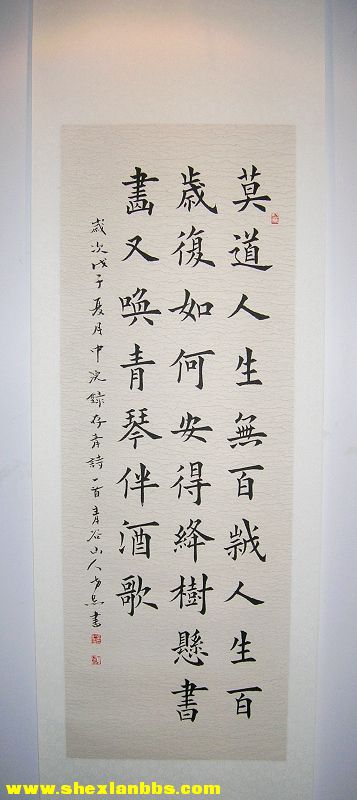 莫道人生無百歲人生百
歳復如何安得絳樹懸書
畵又喚青琴伴酒歌
歲次戊子夏月中浣錄存詩一首青谷山人書
www.shexianbbs.com